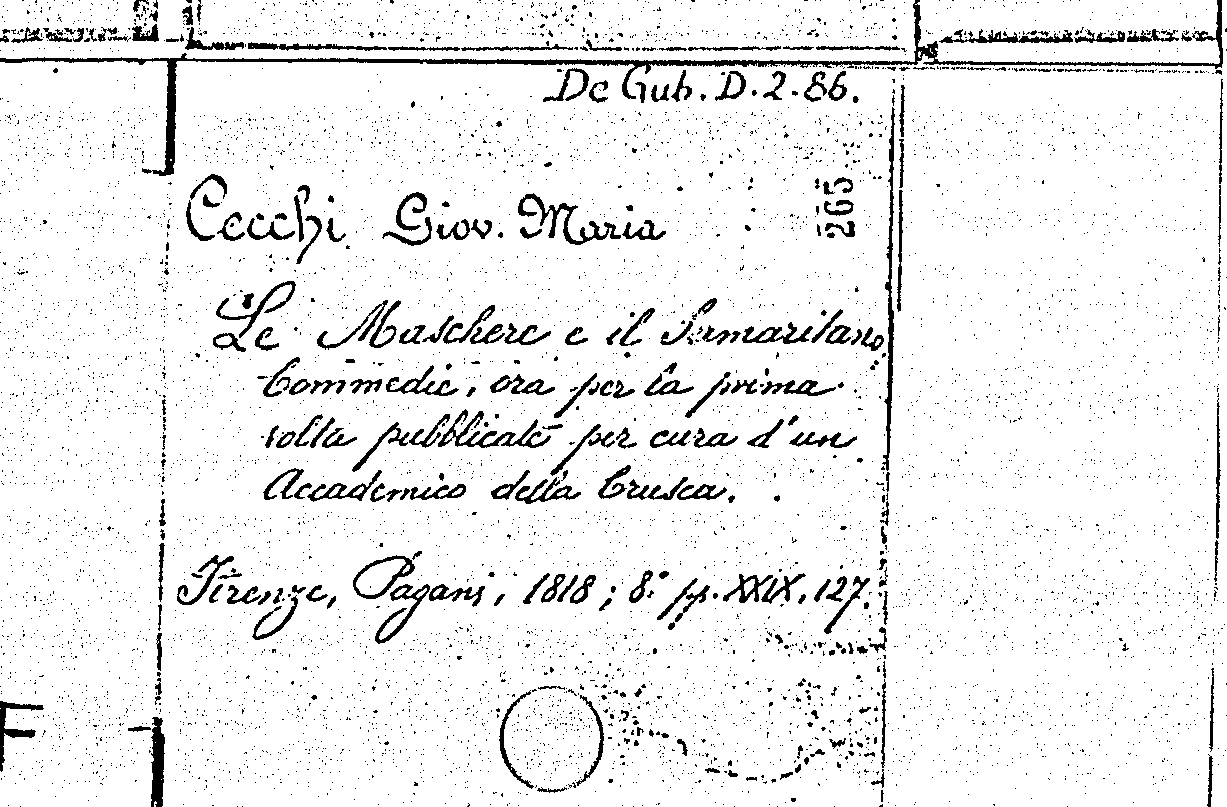 De Gub. D.2.86.
265
Cecchi Giov. Maria
Le Maschere e il Samaritano
Commedie, ora per la prima
volta pubblicate per cura d'un
Accademico della Crusca.
Firenze, Pagani, 1818; 8.° pp. XXIX, 127.
F